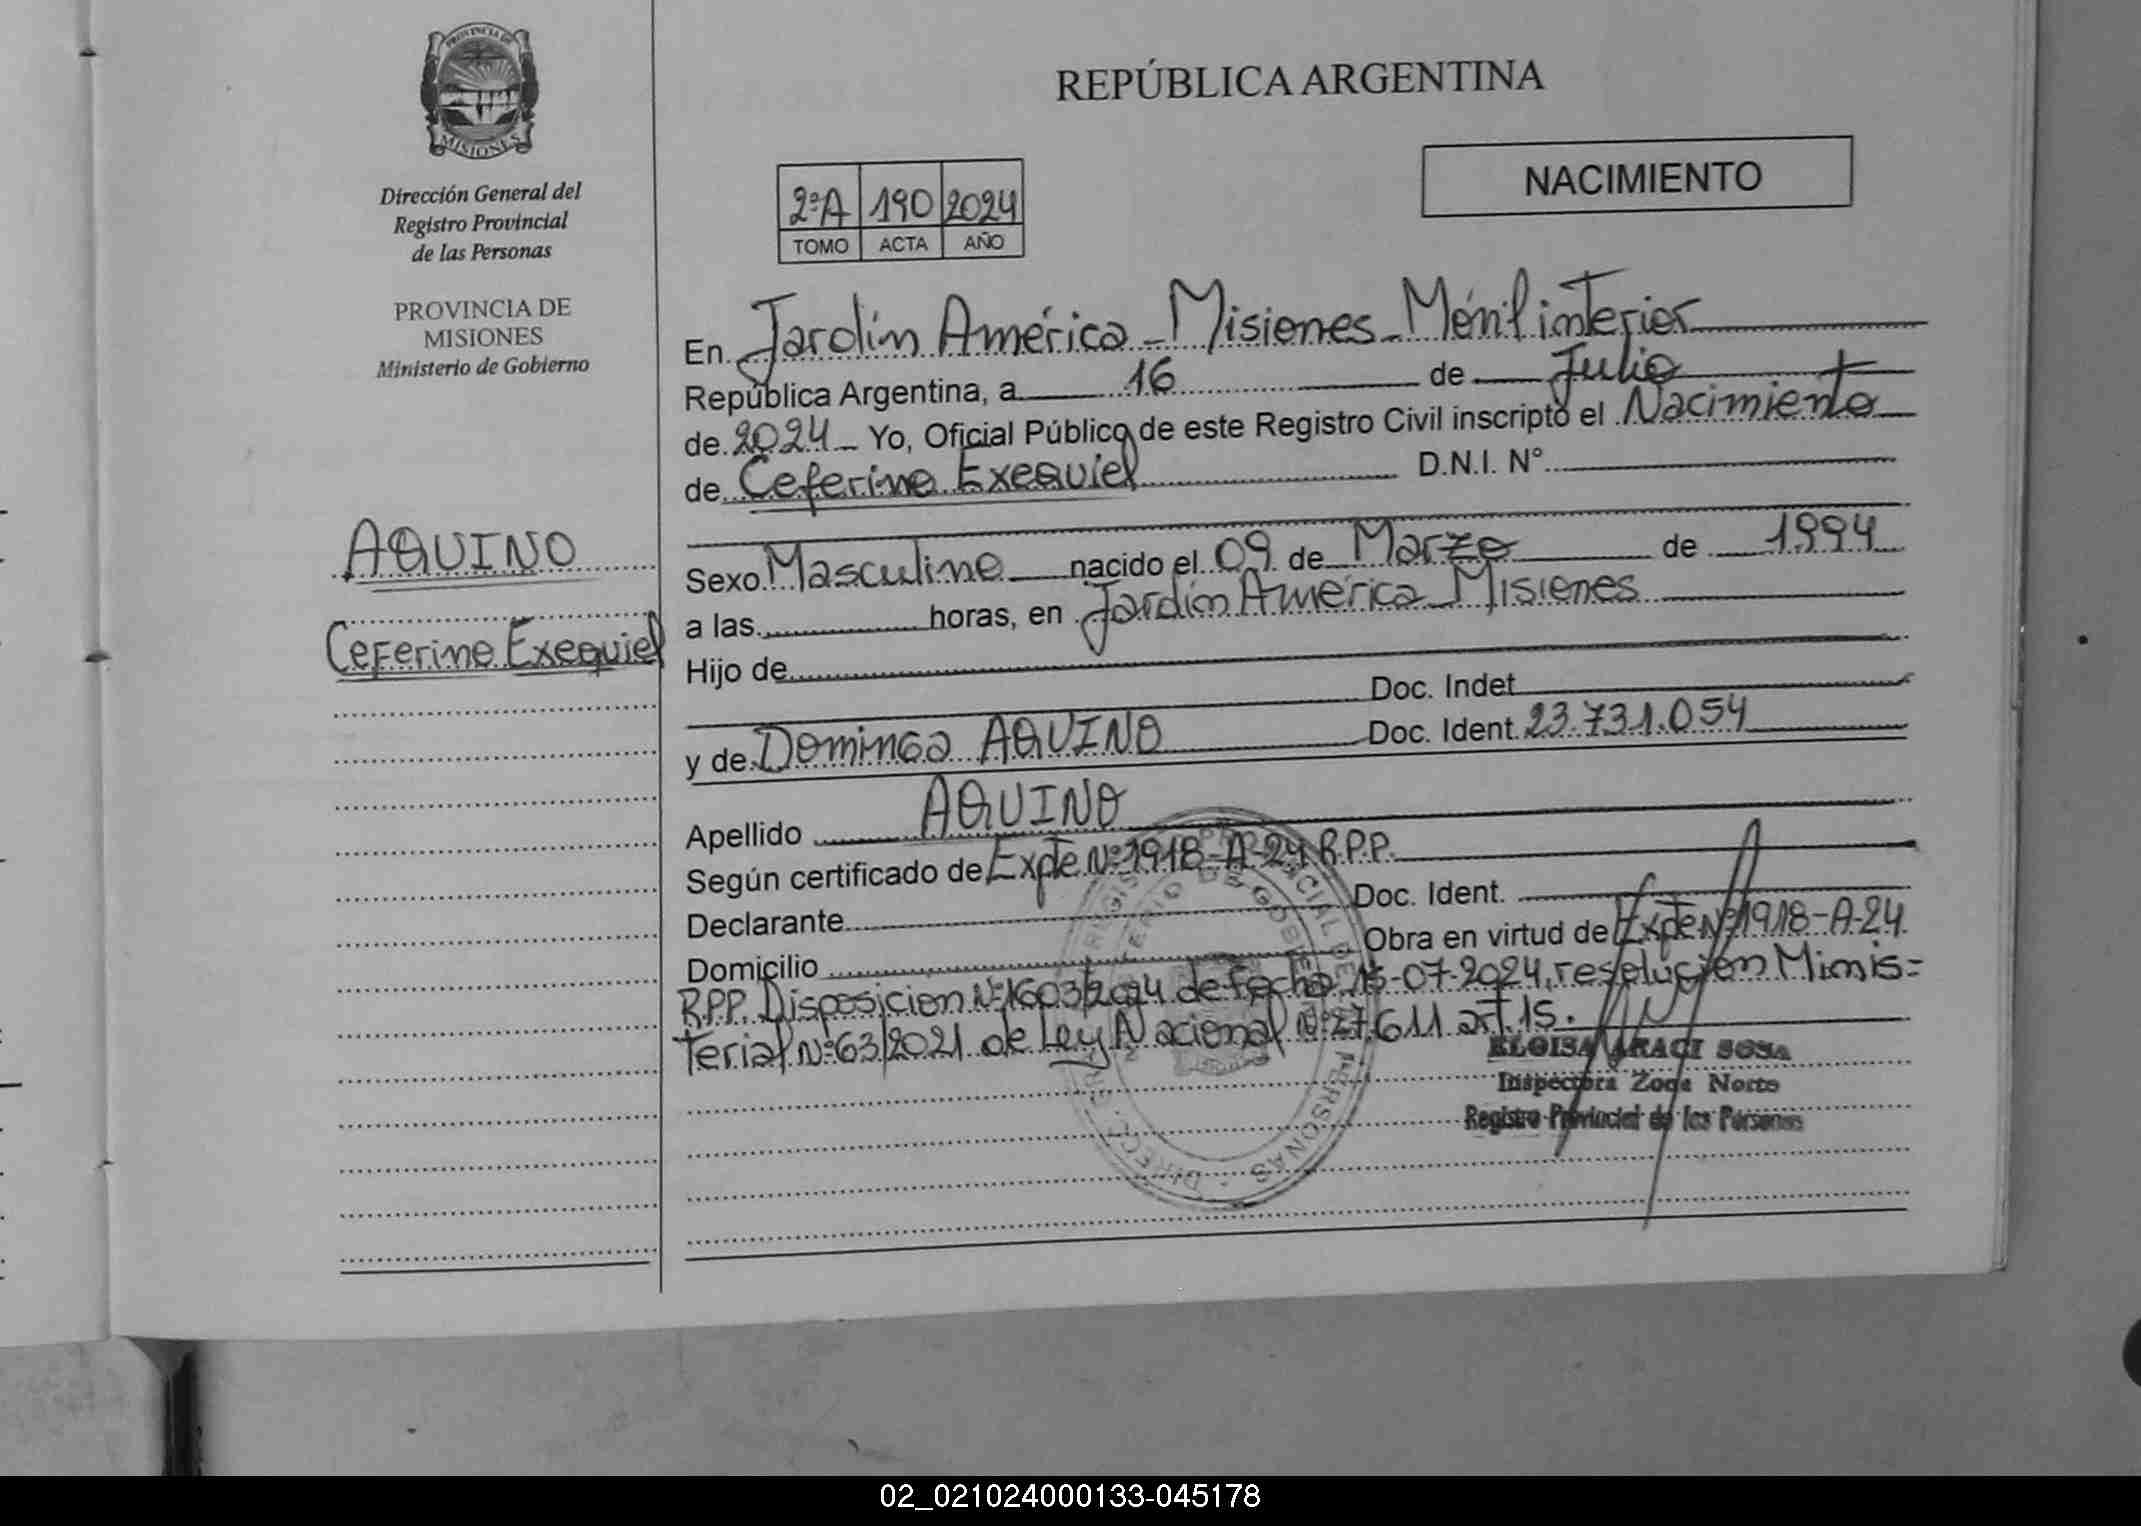 PROVINCIA DE
MISIONES
Dirección General del
Registro Provincial
de las Personas
PROVINCIA DE
MISIONES
Ministerio de Gobierno
AQUINO
Ceferino Exequiel
REPÚBLICA ARGENTINA
NACIMIENTO
2ºA 190 2024
TOMO ACTA AÑO
En Jardín América - Misiones - Móvil interior
República Argentina, a 16 de Julio
de 2024 - Yo, Oficial Público de este Registro Civil inscripto el Nacimiento
de Ceferino Exequiel D.N.I. N°
Sexo Masculino nacido el 09 de Marzo de 1994
a las horas, en Jardín América - Misiones
Hijo de
Doc. Indet
y de Dominga AQUINO Doc. Ident. 23.731.054
Apellido AQUINO
Según certificado de Expte Nº 1918-A-24 R.P.P.
Declarante Doc. Ident.
Domicilio Obra en virtud de Expte Nº 1918-A-24
R.P.P. Disposicion Nº 1603/2024 de fecha 15-07-2024, resolución Minis=
terial Nº 63/2021 de Ley Nacional Nº 27.611 art. 15.
ELOISA ARACI SOSA
Inspectora Zona Norte
Registro Provincial de las Personas
02_021024000133-045178